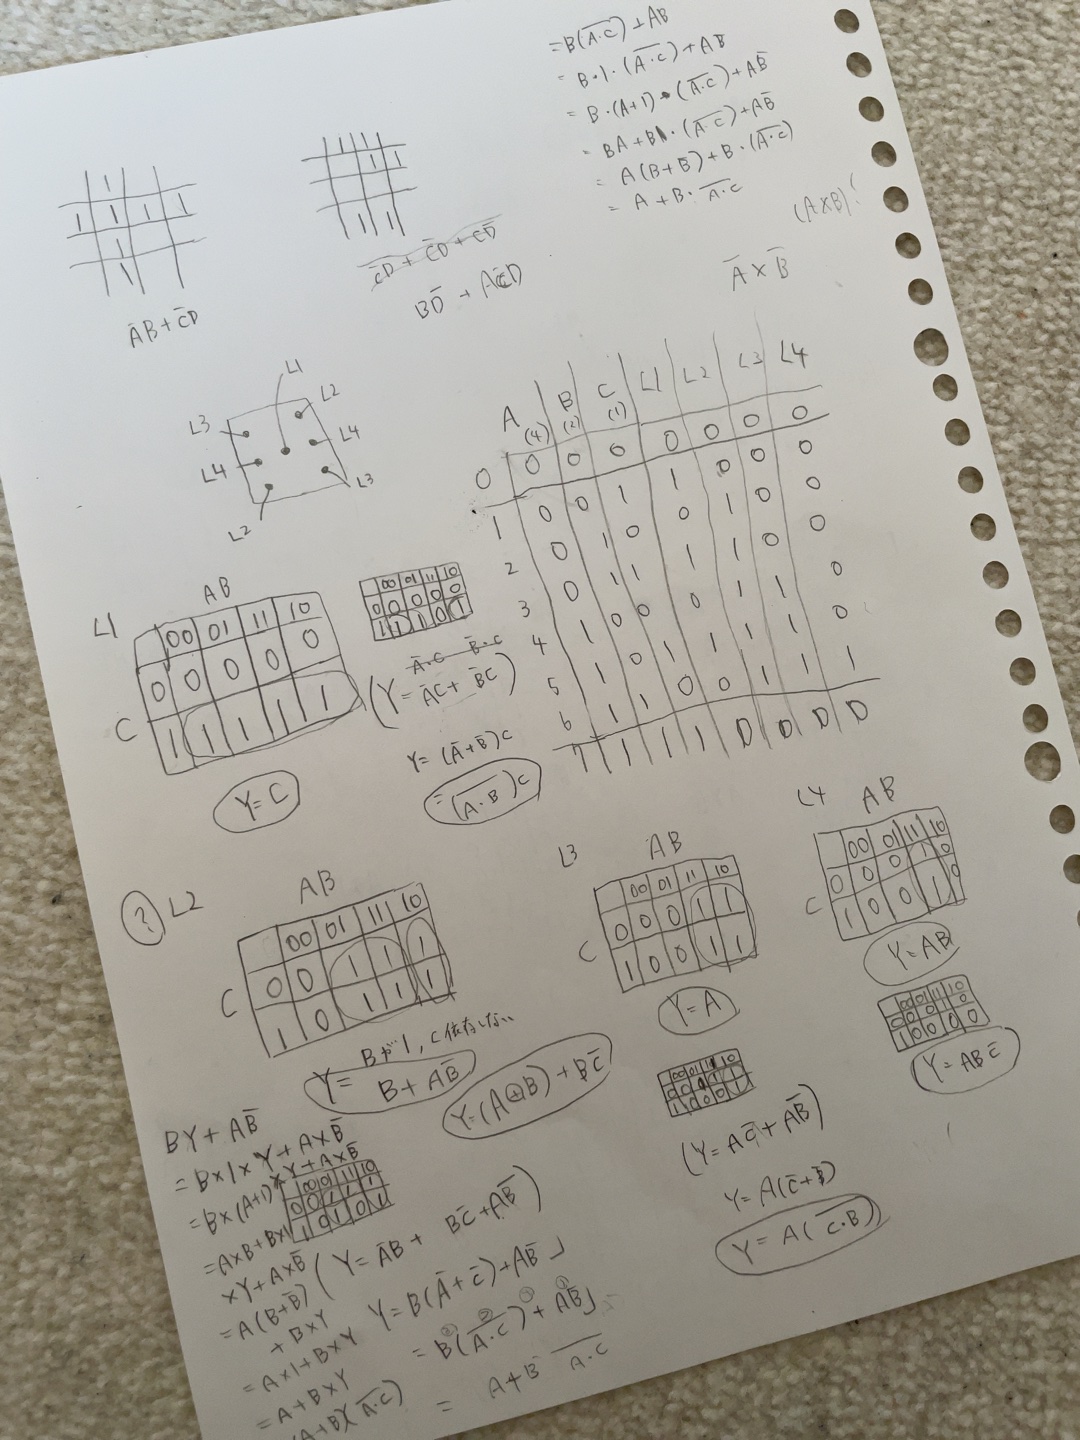 =B(A̅·̅C̅)+AB
= B·1·(A̅·̅C̅)+AB̅
= B·(A+1)·(A̅·̅C̅)+AB̅
= BA+B·(A̅·̅C̅)+AB̅
= A(B+B̅)+B·(A̅·̅C̅)
= A+B·A̅·̅C̅
(A×B)
A̅×B̅
1
1 1 1 1
1
1
A̅B+C̅D
1 1 1
1 1 1
1 1
C̅D̅+C̅D+CD̅
BD̅+AC̅D
L1
L2
L3
L4
L4
L3
L2
A B C L1 L2 L3 L4
(4) (2) (1)
0 0 0 0 0 0 0 0
1 0 0 1 1 0 0 0
2 0 1 0 0 1 0 0
3 0 1 1 1 1 0 0
4 1 0 0 0 1 1 0
5 1 0 1 1 1 1 0
6 1 1 0 0 1 1 1
7 1 1 1 1 0 0 0 0
L1
AB
00 01 11 10
0 0 0 0 0
C
1 1 1 1 1
Y=C
00 01 11 10
0 0 0 0 0
1 1 1 0 1
A̅·C B̅·C
(Y=A̅C+B̅C)
Y=(A̅+B̅)C
=(A̅·̅B̅)C
? L2
AB
00 01 11 10
0 0 1 1 1
C
1 0 1 1 1
Bが1,C依存しない
Y=B+AB̅
Y=(A⊕B)+BC̅
L3
AB
00 01 11 10
0 0 0 1 1
C
1 0 0 1 1
Y=A
00 01 11 10
0 0 0 1 1
1 0 0 0 1
(Y=AC̅+AB̅)
Y=A(C̅+B̅)
Y=A(C̅·̅B̅)
L4
AB
00 01 11 10
0 0 0 1 0
C
1 0 0 1 0
Y=AB
00 01 11 10
0 0 0 1 0
1 0 0 0 0
Y=ABC̅
BY+AB̅
=B×1×Y+A×B̅
=B×(A+1)×Y+A×B̅
=A×B+B×1
×Y+A×B̅
=A(B+B̅)
+B×Y
=A×1+B×Y
=A+B×Y
(A+B)(A̅·̅C̅)
00 01 11 10
0 0 1 1 1
1 0 1 0 1
(Y=A̅B+BC̅+AB̅)
Y=B(A̅+C̅)+AB̅
=B(A̅·̅C̅)+AB̅
= A+B A̅·̅C̅